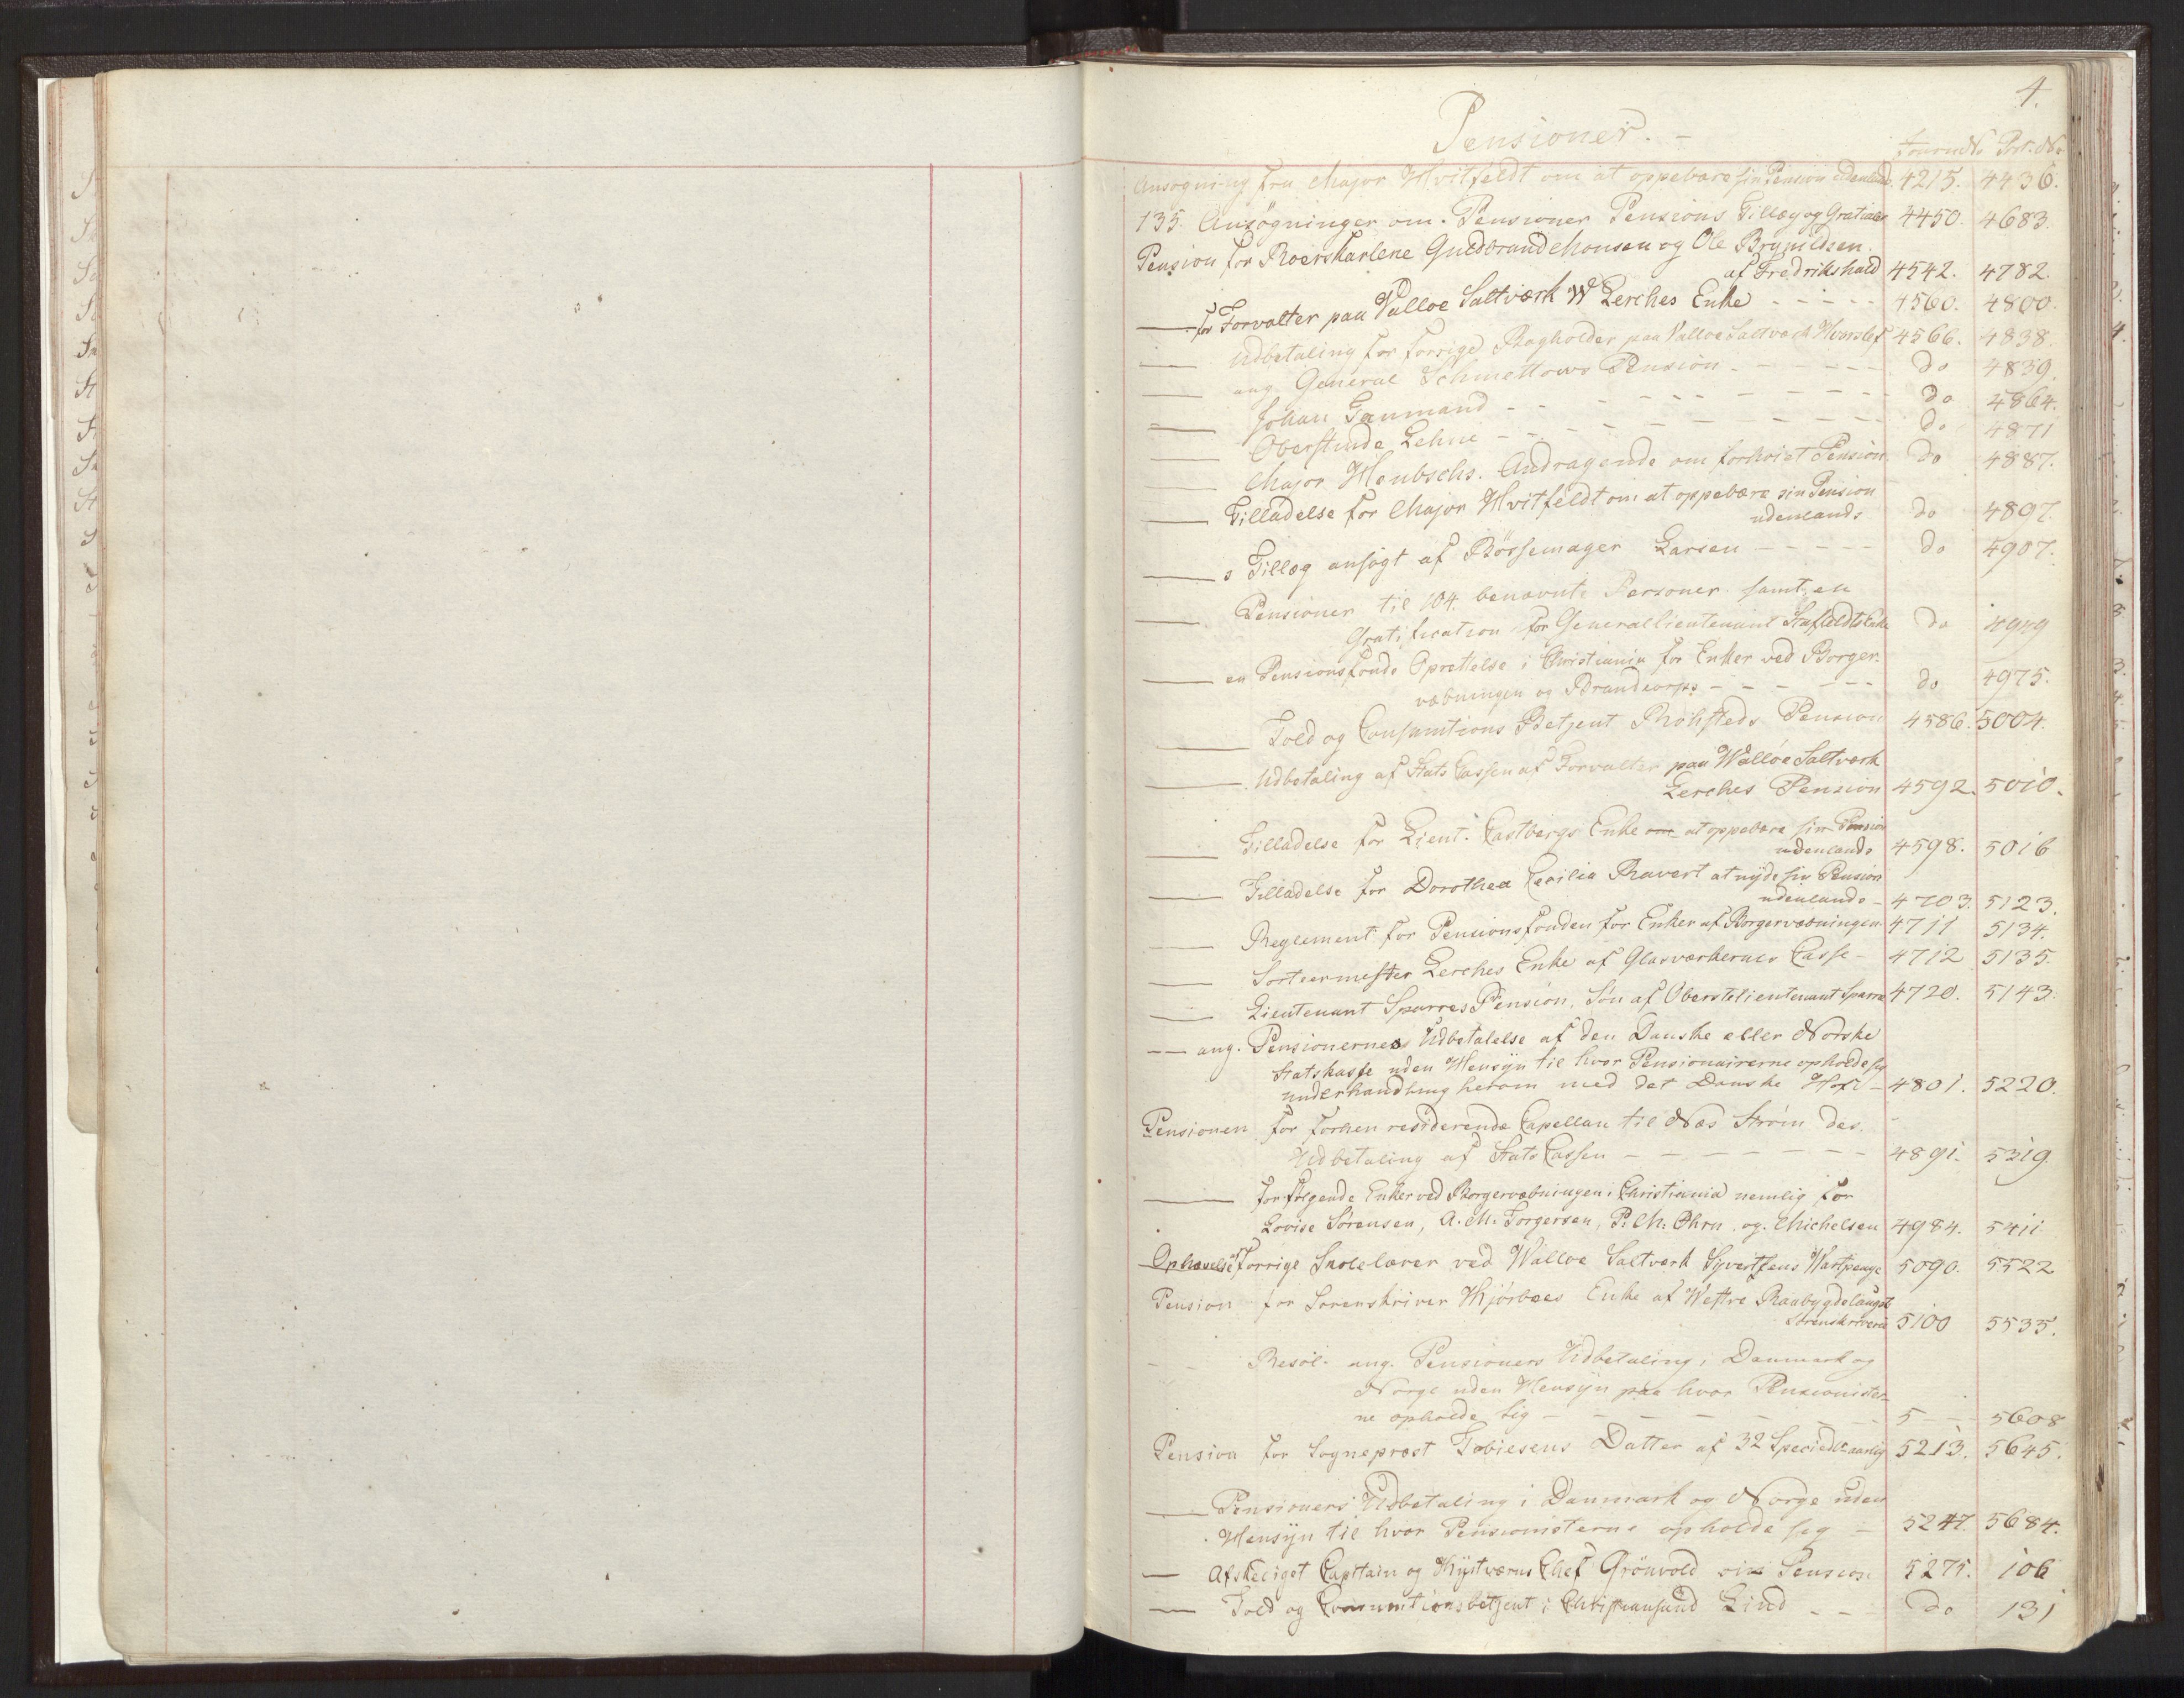 4.
Pensioner. –
Journ No Port. No
Ansøgning fra Major Hvitfeldt om at oppebære sin Pension udenlands 4215. 4436.
135. Ansøgninger om Pensioner Pensions Tillæg og Gratialer 4450. 4683.
Pension for Roerskarlene Guldbrand Monsen og Ole Brynildsen
af Fredrikshald 4542. 4782.
— for Forvalter paa Valloe Saltværk W Lerches Enke - - - - - 4560. 4800.
— Udbetaling for forrige Bogholder paa Valloe Saltværk 4566. 4838.
— ang General Schmettows Pension - - - - - - do 4839.
— Johan - - - - - - - - - do 4864.
— Oberstinde Lehne - - - - - - - - - do 4871
— Major Heubschs. Andragende om forhøiet Pension do 4887.
— Tilladelse for Major Hvitfeldt om at oppebære sin Pension
udenlands do 4897.
— s Tillæg ansøgt af Bøssemager Larsen - - - - - do 4907.
— Pensioner til 104 benævnte Personer samt en
Gratification for Generallieutenant Staffeldts Enke do 4949
— en Pensionsfonds Oprettelse i Christiania for Enker ved Borger-
væbningen og Brandcorps - - - - - - do 4975.
— Told og Consumtions Betjent Pension 4586. 5004.
— Udbetaling af Stats Cassen af Forvalter paa Walløe Saltværk
Lerches Pension 4592. 5010.
— Tilladelse for Lieut. Castbergs Enke om at oppebære sin Pension
udenlands 4598. 5016
— Tilladelse for Dorothea Cecilia Ravert at nyde sin Pension
udenlands - 4703. 5123.
— Reglement for Pensionsfonden for Enker af Borgervæbningen 4711 5134.
— Sorteermester Lerches Enke af Glasværkernes Casse - 4712 5135.
— Lieutenant Sparres Pension, Søn af Oberstelieutenant Sparre 4720. 5143.
— ang. Pensionernes Udbetalelse af den Danske eller Norske
Statskasse uden Hensyn til hvor Pensionairerne opholde sig
underhandling herom med det Danske Hof - 4801. 5220.
Pensionen for forhen residerende Capellan til Næs Strøm des
Udbetaling af Stats Cassen - - - - - - - 4891. 5319.
— for følgende Enker ved Borgervæbningen i Christiania nemlig for
Lovise Sørensen, A. M. Torgersen, P. M. Øhrn og Michelsen 4984. 5411.
Ophævelse af forrige Skolelærer ved Walloe Saltværk Syvertsens Wartpenge 5090. 5522
Pension for Sorenskriver Hjørboes Enke af Westre Raabygdelaugets
Sorenskriverie 5100 5535.
— Resol. ang. Pensioners Udbetaling i Danmark og
Norge uden Hensyn paa hvor Pensionister-
ne opholde sig - - - - - - - 5 — 5608
Pension for Sogneprest Tobiesens Datter af 32 Speciedlr aarlig 5213. 5645.
— Pensioners Udbetaling i Danmark og Norge uden
Hensyn til hvor Pensionisterne opholde sig - 5247. 5684.
— Afskediget Captain og Kystværns Chef Grönvold sin Pension 5275. 106
— Told og Consumtionsbetjent i Christiansund Lind - - - do 131